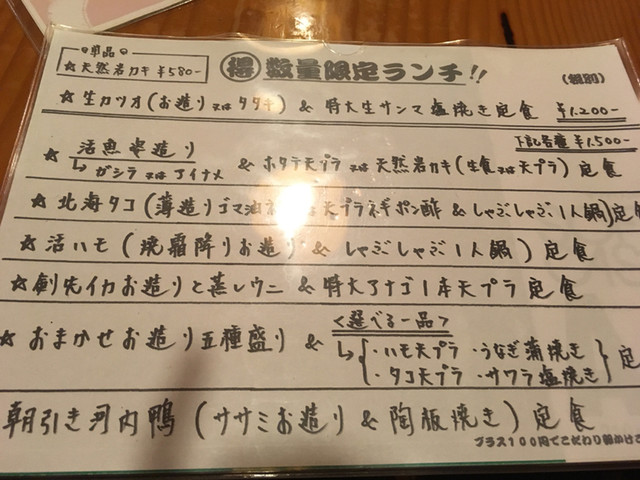 単品
☆天然岩カキ ¥580-
得 数量限定ランチ!!
(税別)
☆生カツオ(お造り又はタタキ) & 特大生サンマ塩焼き定食 ¥1,200-
下記各種 ¥1,500-
☆活魚姿造り & ホタテ天プラ又は天然岩カキ(生食又は天プラ) 定食
↳ガシラ又はアイナメ
☆北海タコ(薄造りゴマ油 天プラネギポン酢 & しゃぶしゃぶ1人鍋)定食
☆活ハモ(湯霜降りお造り & しゃぶしゃぶ1人鍋) 定食
☆剣先イカお造りと蒸しウニ & 特大アナゴ1本天プラ 定食
☆おまかせお造り五種盛り & <選べる一品>
↳ ・ハモ天プラ ・うなぎ蒲焼き
・タコ天プラ ・サワラ塩焼き 定
朝引き河内鴨(ササミお造り & 陶板焼き) 定食
プラス100円でこだわり卵かけご